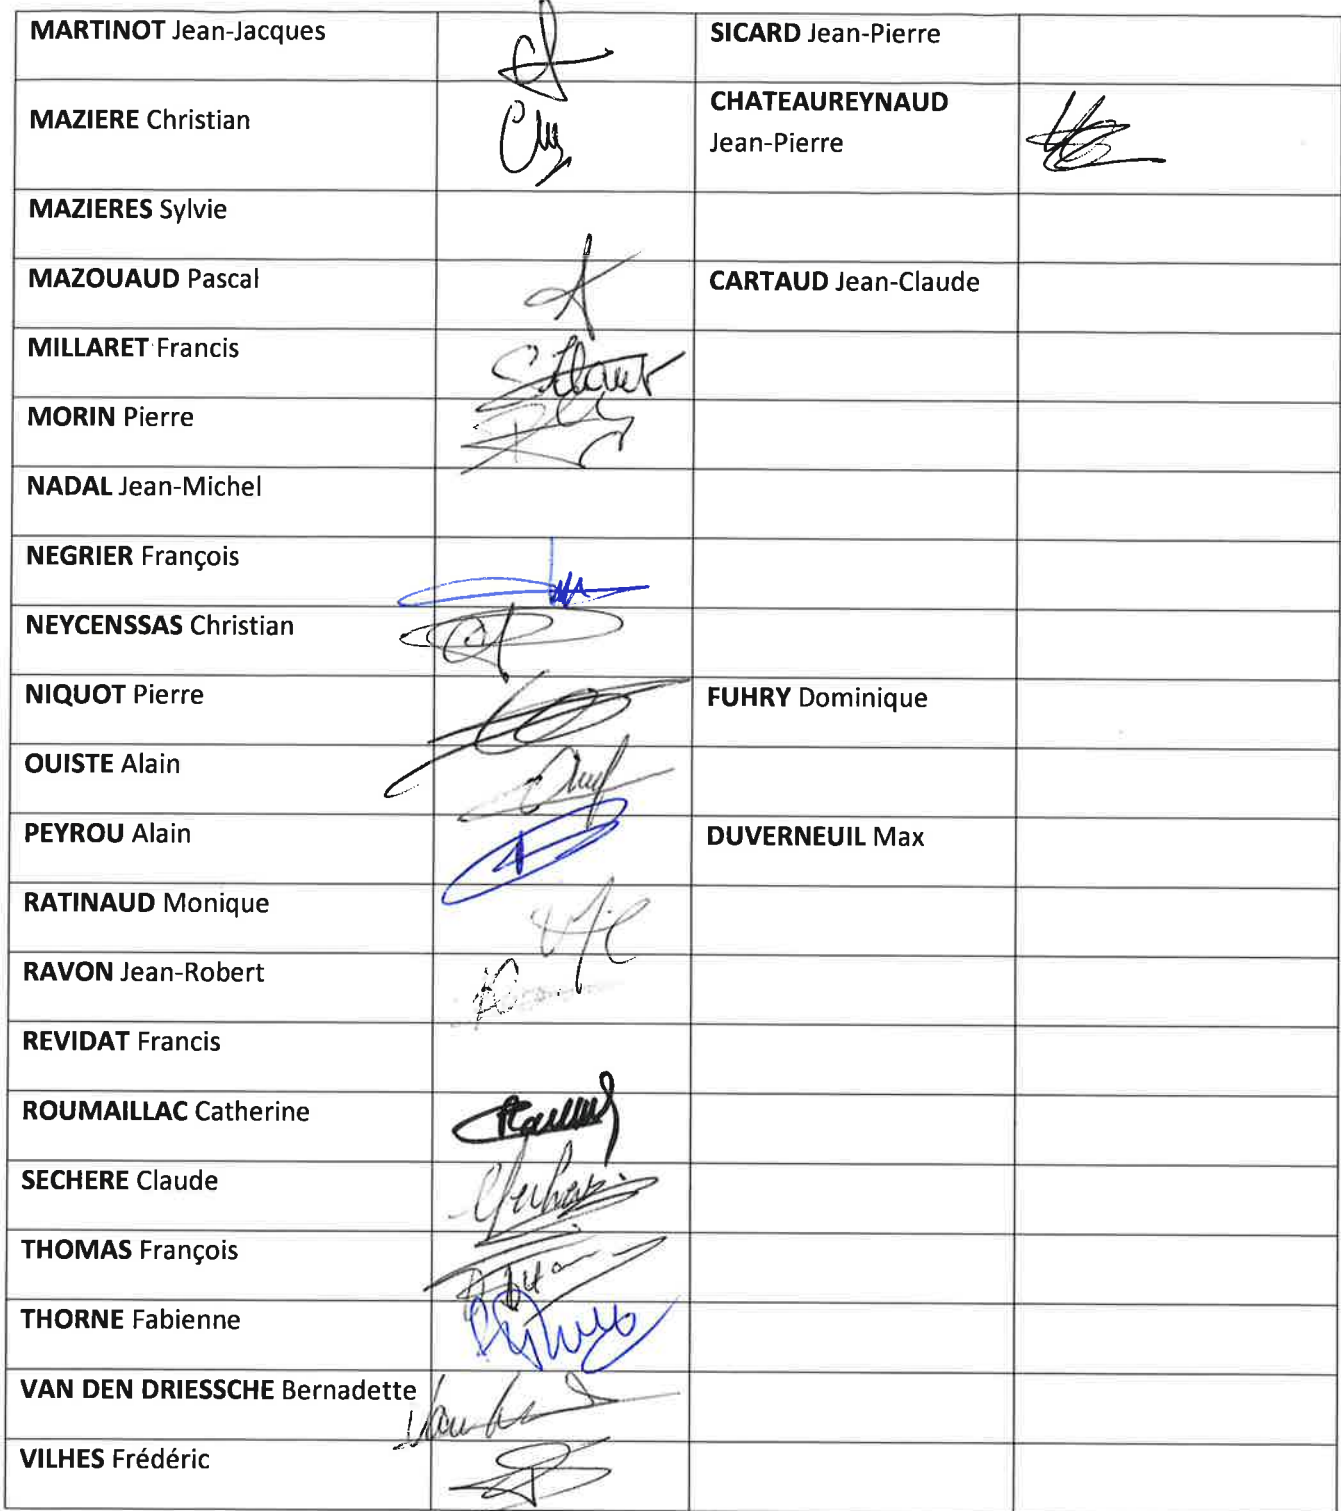 MARTINOT Jean-Jacques
SICARD Jean-Pierre
MAZIERE Christian
CHATEAUREYNAUD
Jean-Pierre
MAZIERES Sylvie
MAZOUAUD Pascal
CARTAUD Jean-Claude
MILLARET Francis
MORIN Pierre
NADAL Jean-Michel
NEGRIER François
NEYCENSSAS Christian
NIQUOT Pierre
FUHRY Dominique
OUISTE Alain
PEYROU Alain
DUVERNEUIL Max
RATINAUD Monique
RAVON Jean-Robert
REVIDAT Francis
ROUMAILLAC Catherine
SECHERE Claude
THOMAS François
THORNE Fabienne
VAN DEN DRIESSCHE Bernadette
VILHES Frédéric